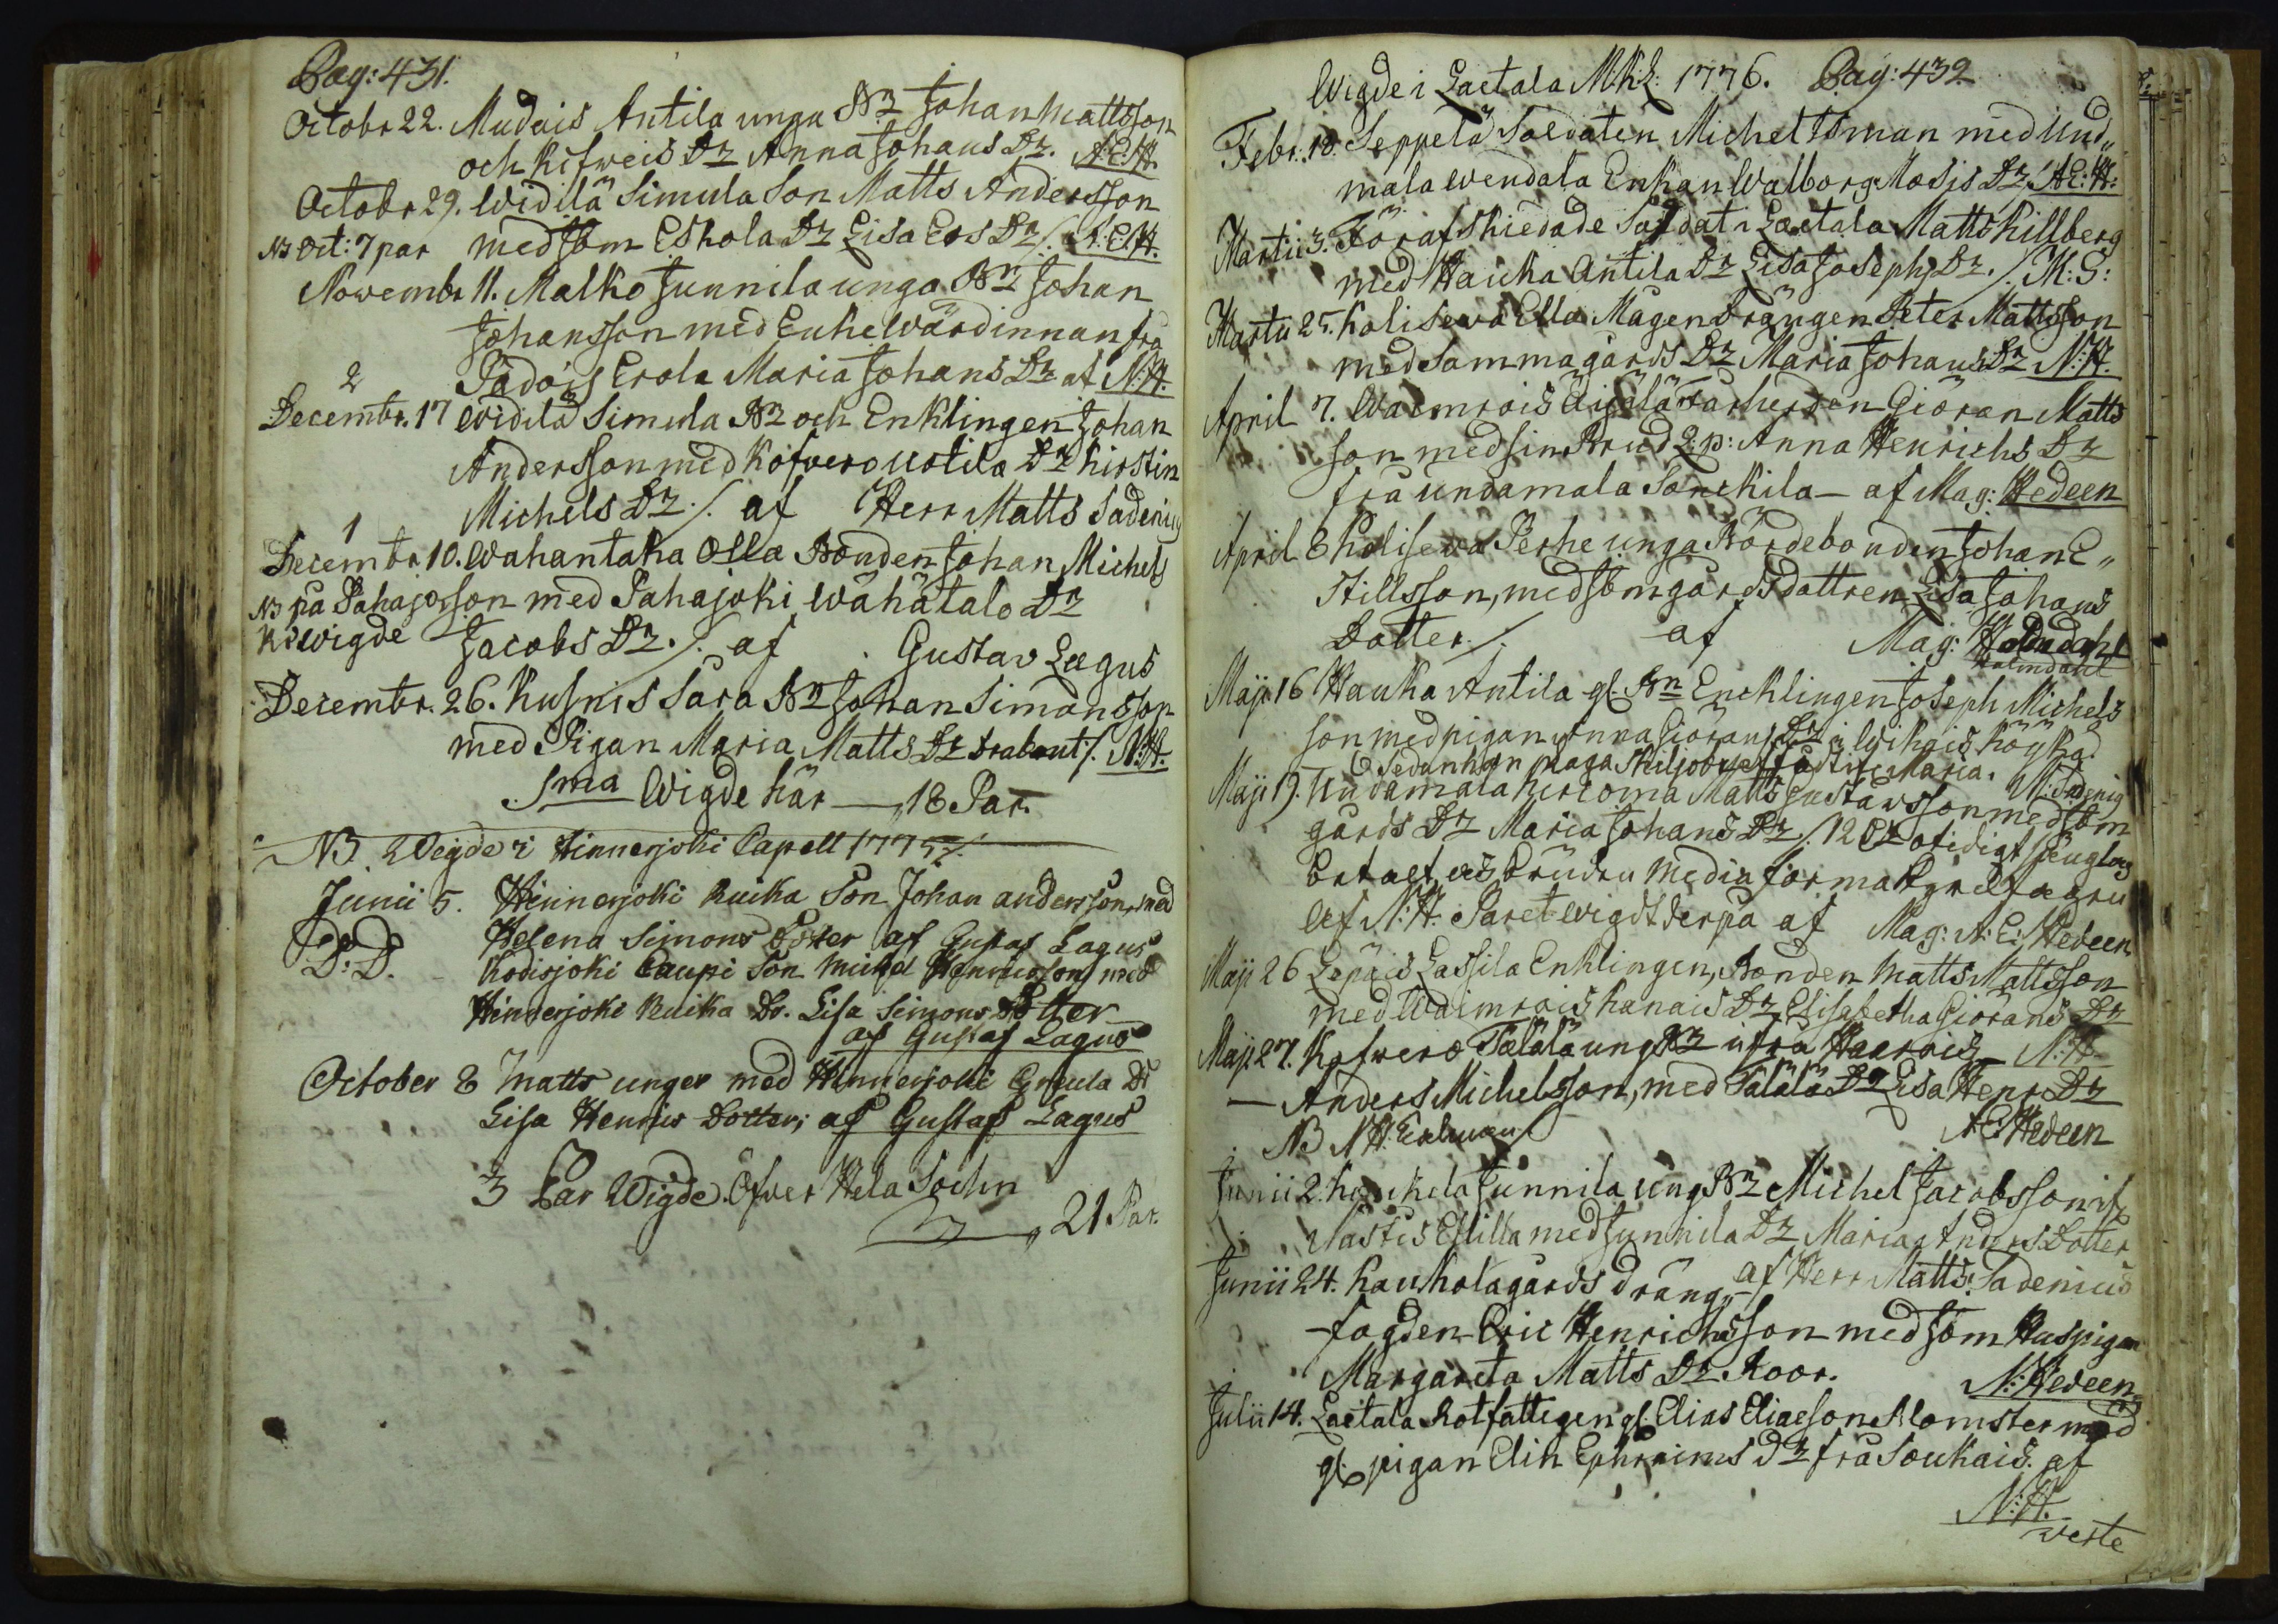 Pag: 431.
Octobr 22. Mudais Antila unga Bn Johan Mattsson
och Kifweis Dr Anna Johans Dr. A:E:H.
Octobr 29. Widilä Simula Son Matts Andersson
NB Oct: 7 par med som Eskola Dr Lisa Ers Dr ./. A:E:H.
Novembr 11. Malko Junnila unga Bn Johan
Johansson med Enke Wärdinnan frå
2 Padois Erola Maria Johans Dr af N:H.
Decembr. 17 Widilä Simula Bn och Enklingen Johan
Andersson med Kofvero Uotila Dr Kirstin
Michels Dr ./. af Herr Matts Sadenius
1
Decembr 10. Wahantaka Olla Bonden Johan Michels
NB på Pahajo son med Pahajoki Wähätalo Dr
ki wigde Jacobs Dr. ./. af Gustav Lagus
Decembr. 26. Kusnis Sara Bn Johan Simonsson
med Pigan Maria Matts Dr Drabant ./. N:H.
Sma Wigde här — 18 Par.
NB Wigde i Hinnerjoki Capell 1775 ./.
Junii 5. Hinnerjoki Ruika Son Johan andersson, med
Helena Simons Dotter af Gustaf Lagus
D:D. Kodisjoki Caupi Son Michel Henricsson med
Hinnerjoki Ruika Dr. Lisa Simons Dotter
af Gustaf Lagus
October 8 Matts unger med Hinnerjoki Gneula Dr
Lisa Henrics Dotter; af Gustaf Lagus
3 Par Wigde. Öfver Hela Sochn
21 Par.
Wigde i Laetala M:K:L: 1776. Pag: 432
Febr. 18. Seppelä Soldaten Michel Isman med Und„
mala Wendala Enkan Walborg Mosis Dr, A:E:H:
Martii 3. För afskiedade Soldat i Laetala Matts Killberg
med Hauka Antila Dr Lisa Josephs Dr. ./. M:S:
Martii 25. Kaliseva Ella Mågen Drängen Peter Mattsson
med Samma gårds Dr Maria Johans Dr N:H.
April 7. Waimrois Äijälä Giöran Matts
son med sin Brud Anna Henrichs Dr
frå Undamala Sonckila — af Mag: Hedeen
April 8 Kaliseva Perhe unga Bördebonden Johan E„
skillsson, med som gårds dottren Lisa Johans
Dotter. ./. af Mag:
Malmdahl
Maji 16 Hauka Antila gl. Bn Encklingen Joseph Michels
son med pigan Anna Giörans Dr i Wikais
M: Sadenius
Maji 19. Undamala Matts Gustavsson med som
gårds Dr Maria Johans Dr. ./. 12
betalt
af N:H. Paret wigdt derpå af Mag: A:E: Hedeen
Maji 26 Lepäis Lassila Enklingen, Bonden Matts Mattsson
med Waimrois Hanais Dr Elisabetha Giörans Dr
Maji 27. Kofvero Tälälä ung Bn ifrå N:H.
— Anders Michelsson, med Tälälä Dr Lisa Henr: Dr
NB N H A:E: Hedeen
Junii 2. Haukola Junnila ung Bn Michel Jacobsson if
Nästis Eskilla med Junnila Dr Maria Anders Dotter
af Herr Matts: Sadenius
Junii 24. Kaukola gårds dräng„
fogden Eric Henrichsson med som Huspigan
Margareta Matts Dr Roor. N: Hedeen
Julii 14. Laetala Rotfattigen gl. Elias Eliaeson Blomster med
gl. pigan Elin Ephraims Dr frå Soukais. af
N:H.
verte